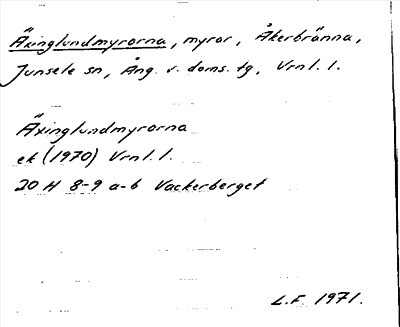 Äxinglundmyrorna, myrar, Åkerbränna,
Junsele sn, Ång. v. doms. tg, Vrnl. 1.
Äxinglundmyrorna
ek (1970) Vrnl. 1.
20 H 8-9 a-b Vackerberget
L.F. 1971.